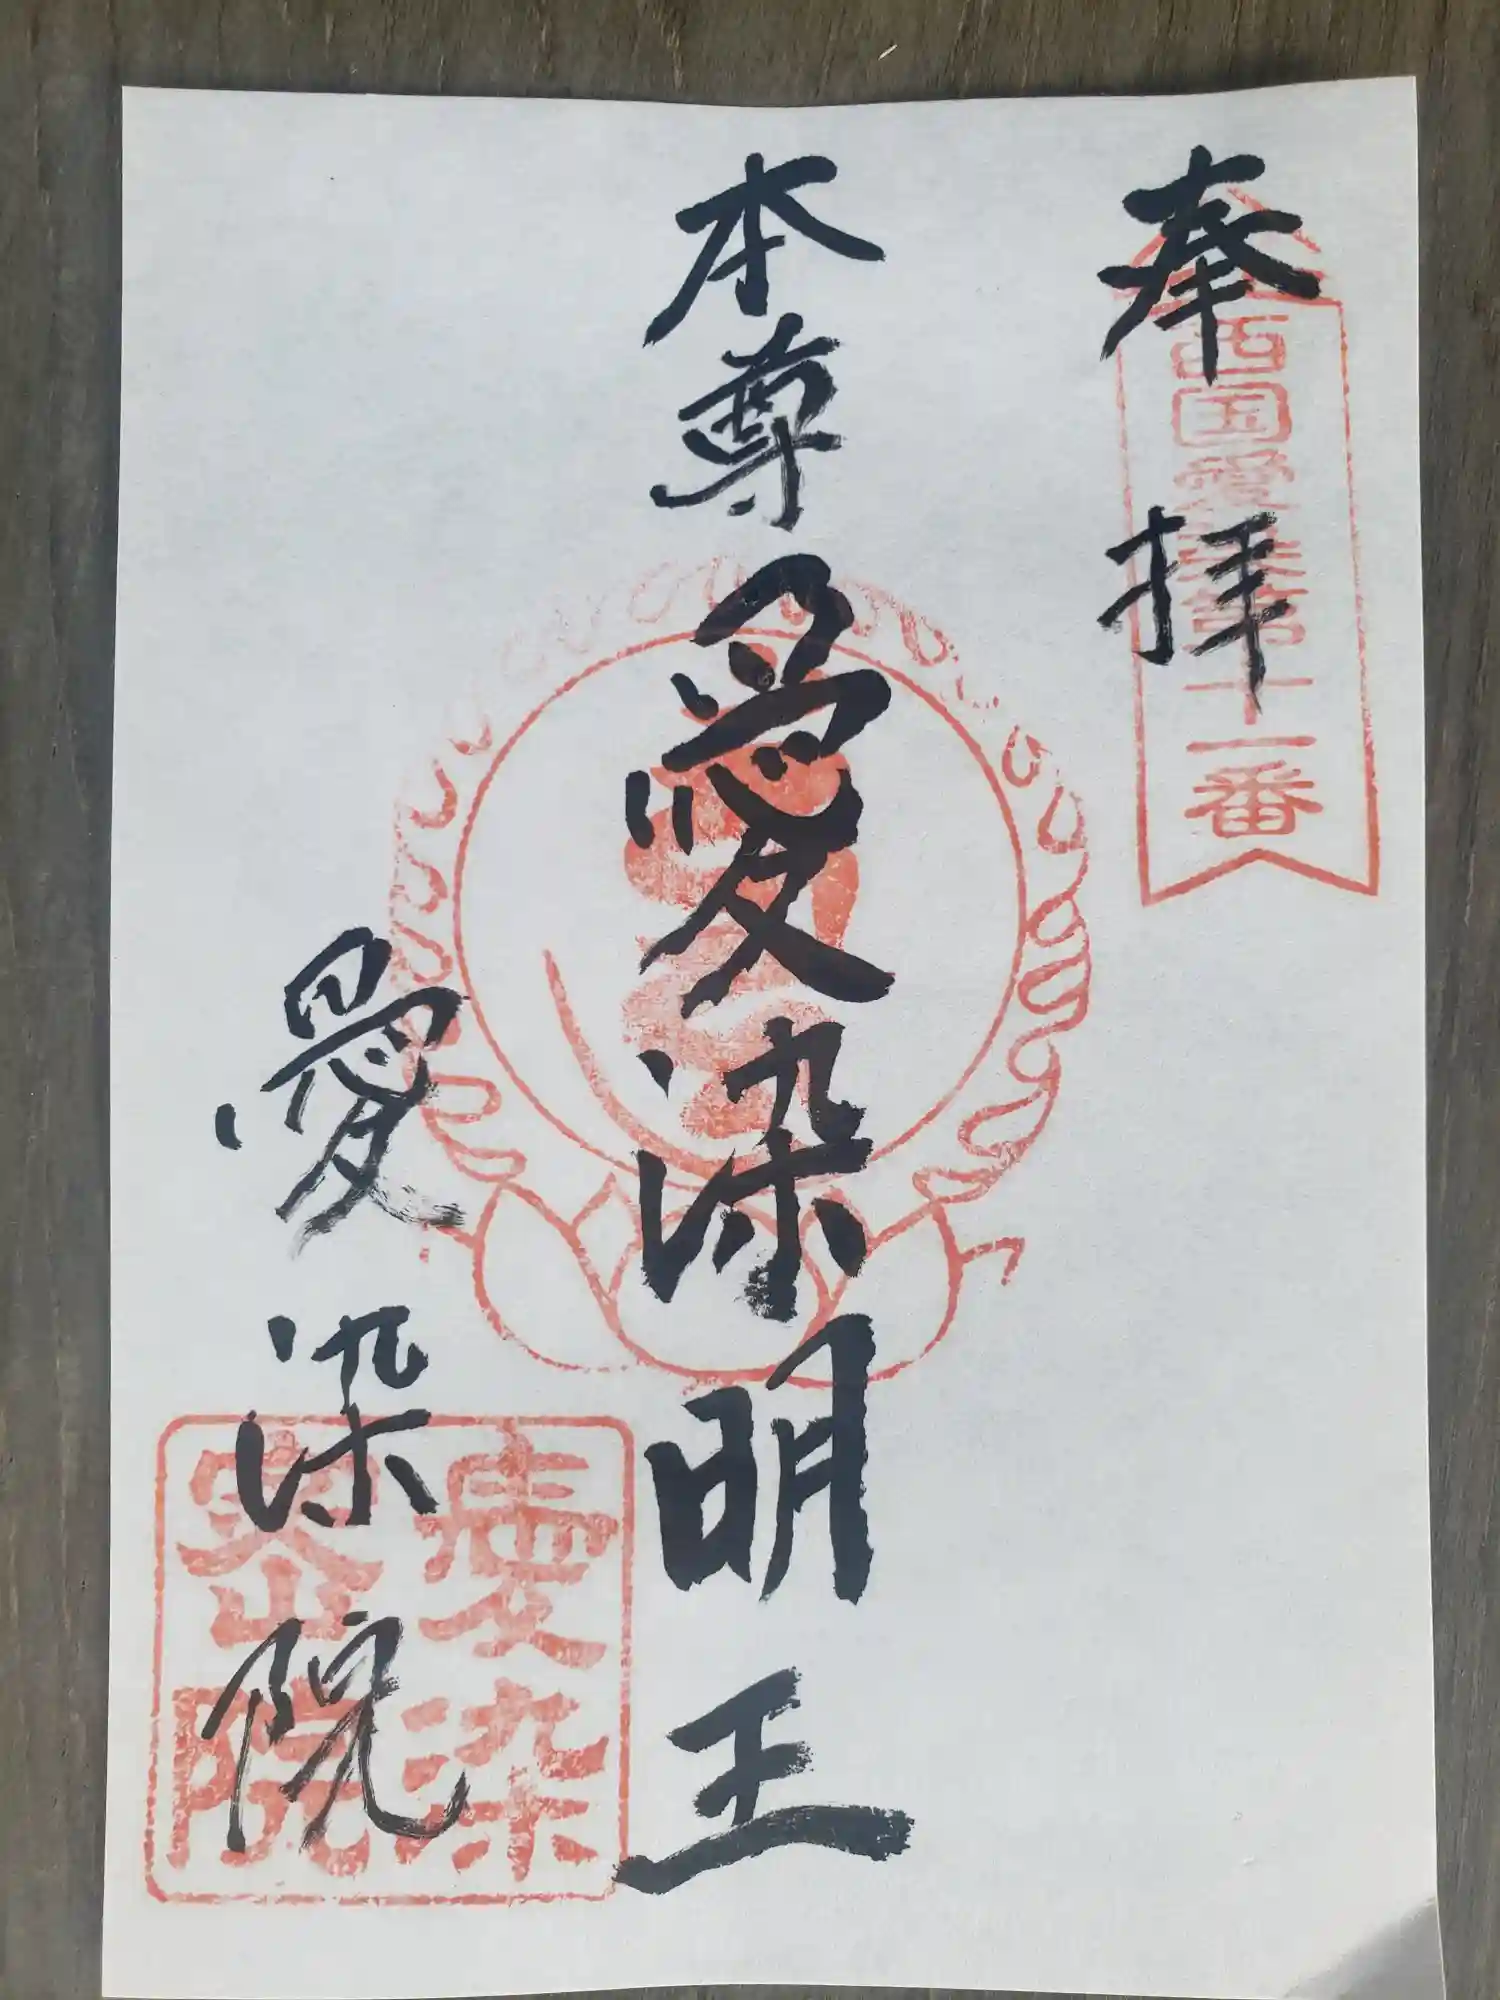 奉拝
西国愛染第十一番
本尊愛染明王
愛染院
愛染
密院